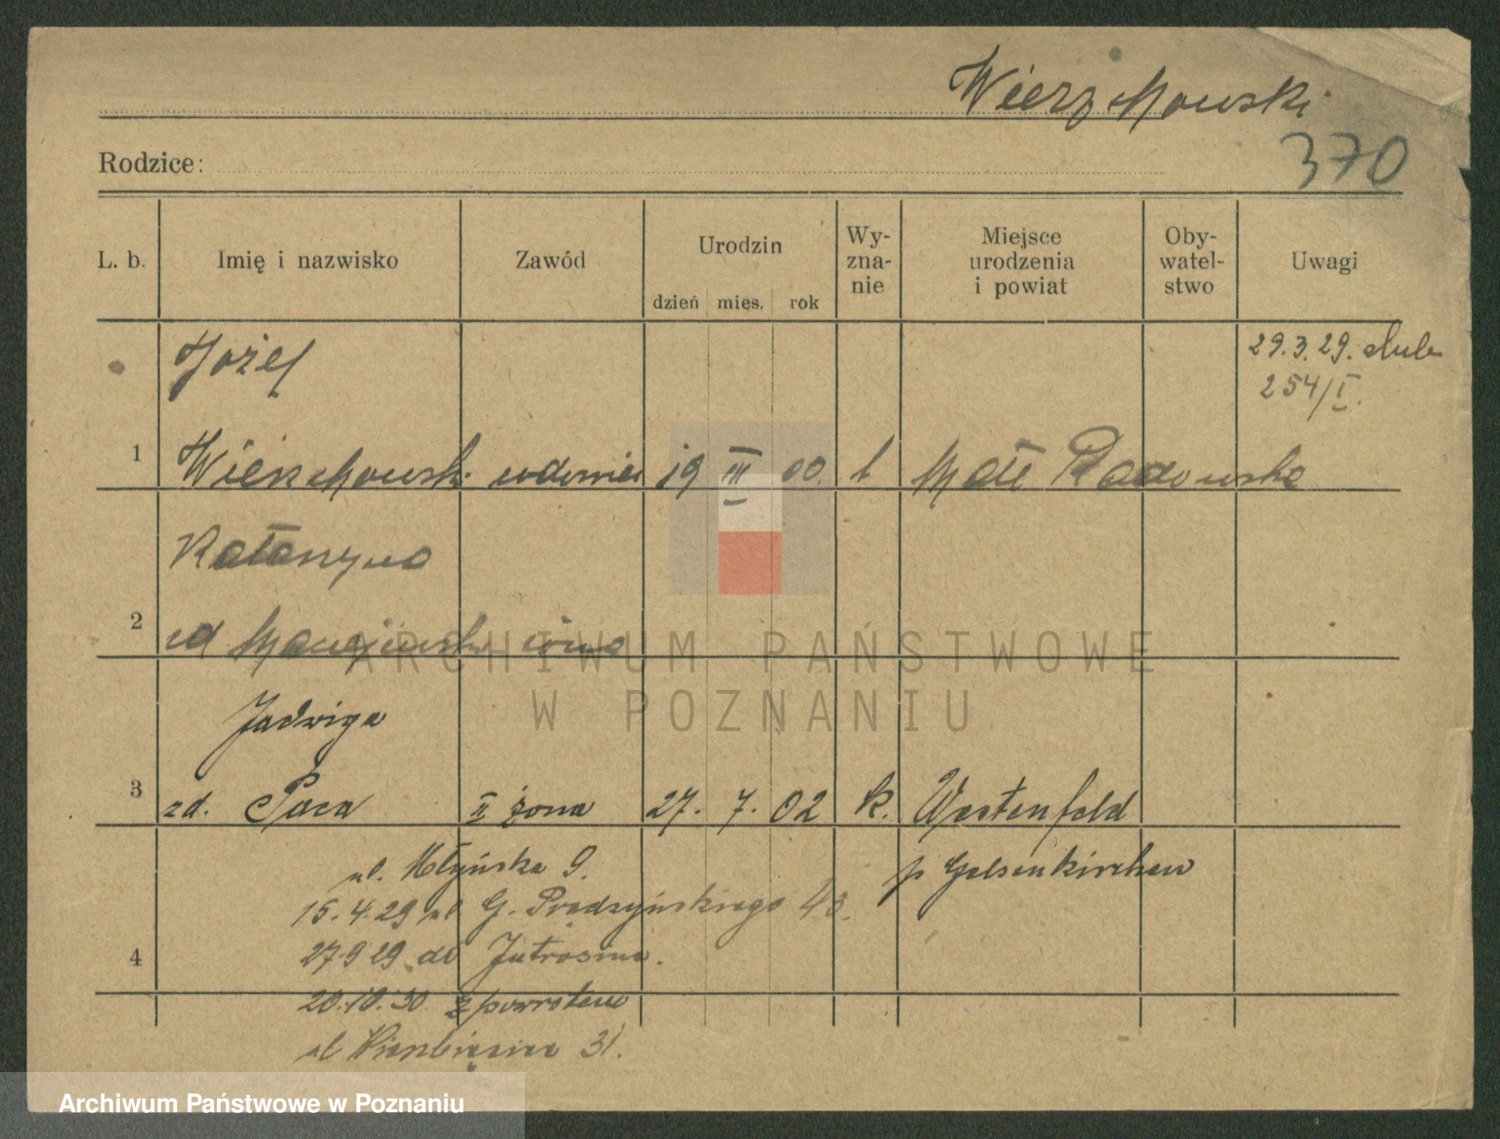 Wierzchowski
370
Rodzice:
L. b. Imię i nazwisko Zawód Urodzin Wy- zna- nie Miejsce urodzenia i powiat Oby- watel- stwo Uwagi
dzień mies. rok
Józef 29.3.29.
254/I.
1 Wierzchowski wdowiec 19 III 00. Małe
Katarzyna
2 zd żona
Jadwiga
3 zd. Paca II żona 27. 7. 02 k. Westenfeld
ul. Młyńska 9. p Gelsenkirchen
15.4.29 ul G. Prądzyńskiego 43.
4 27.9.29 do Jutrosina.
20.10.30. z powrotem
ul 31.
ARCHIWUM PAŃSTWOWE
W POZNANIU
Archiwum Państwowe w Poznaniu